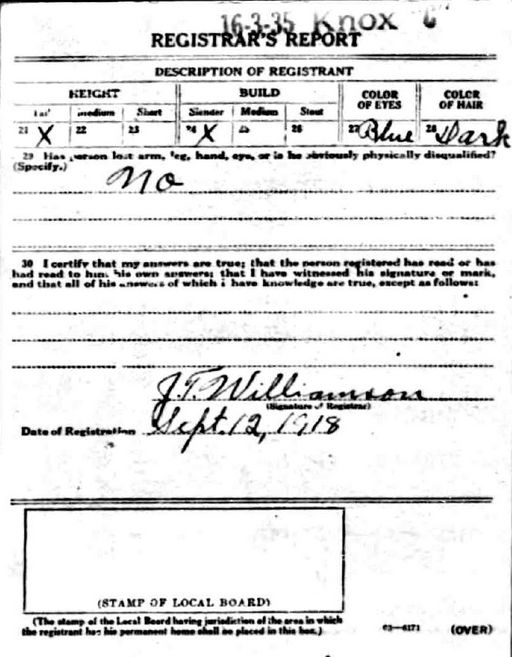 16-3-35 Knox C
REGISTRAR'S REPORT
DESCRIPTION OF REGISTRANT
HEIGHT BUILD COLOR OF EYES COLOR OF HAIR
Tall Medium Short Slender Medium Stout
21 X 22 23 24 X 25 26 27 Blue 28 Dark
29 Has person lost arm, leg, hand, eye, or is he obviously physically disqualified?
(Specify.)
No
30 I certify that my answers are true; that the person registered has read or has
had read to him his own answers; that I have witnessed his signature or mark,
and that all of his answers of which I have knowledge are true, except as follows:
J. T. Williamson
(Signature of Registrar)
Date of Registration Sept. 12, 1918
(STAMP OF LOCAL BOARD)
(The stamp of the Local Board having jurisdiction of the area in which
the registrant has his permanent home shall be placed in this box.)
03—6171 (OVER)